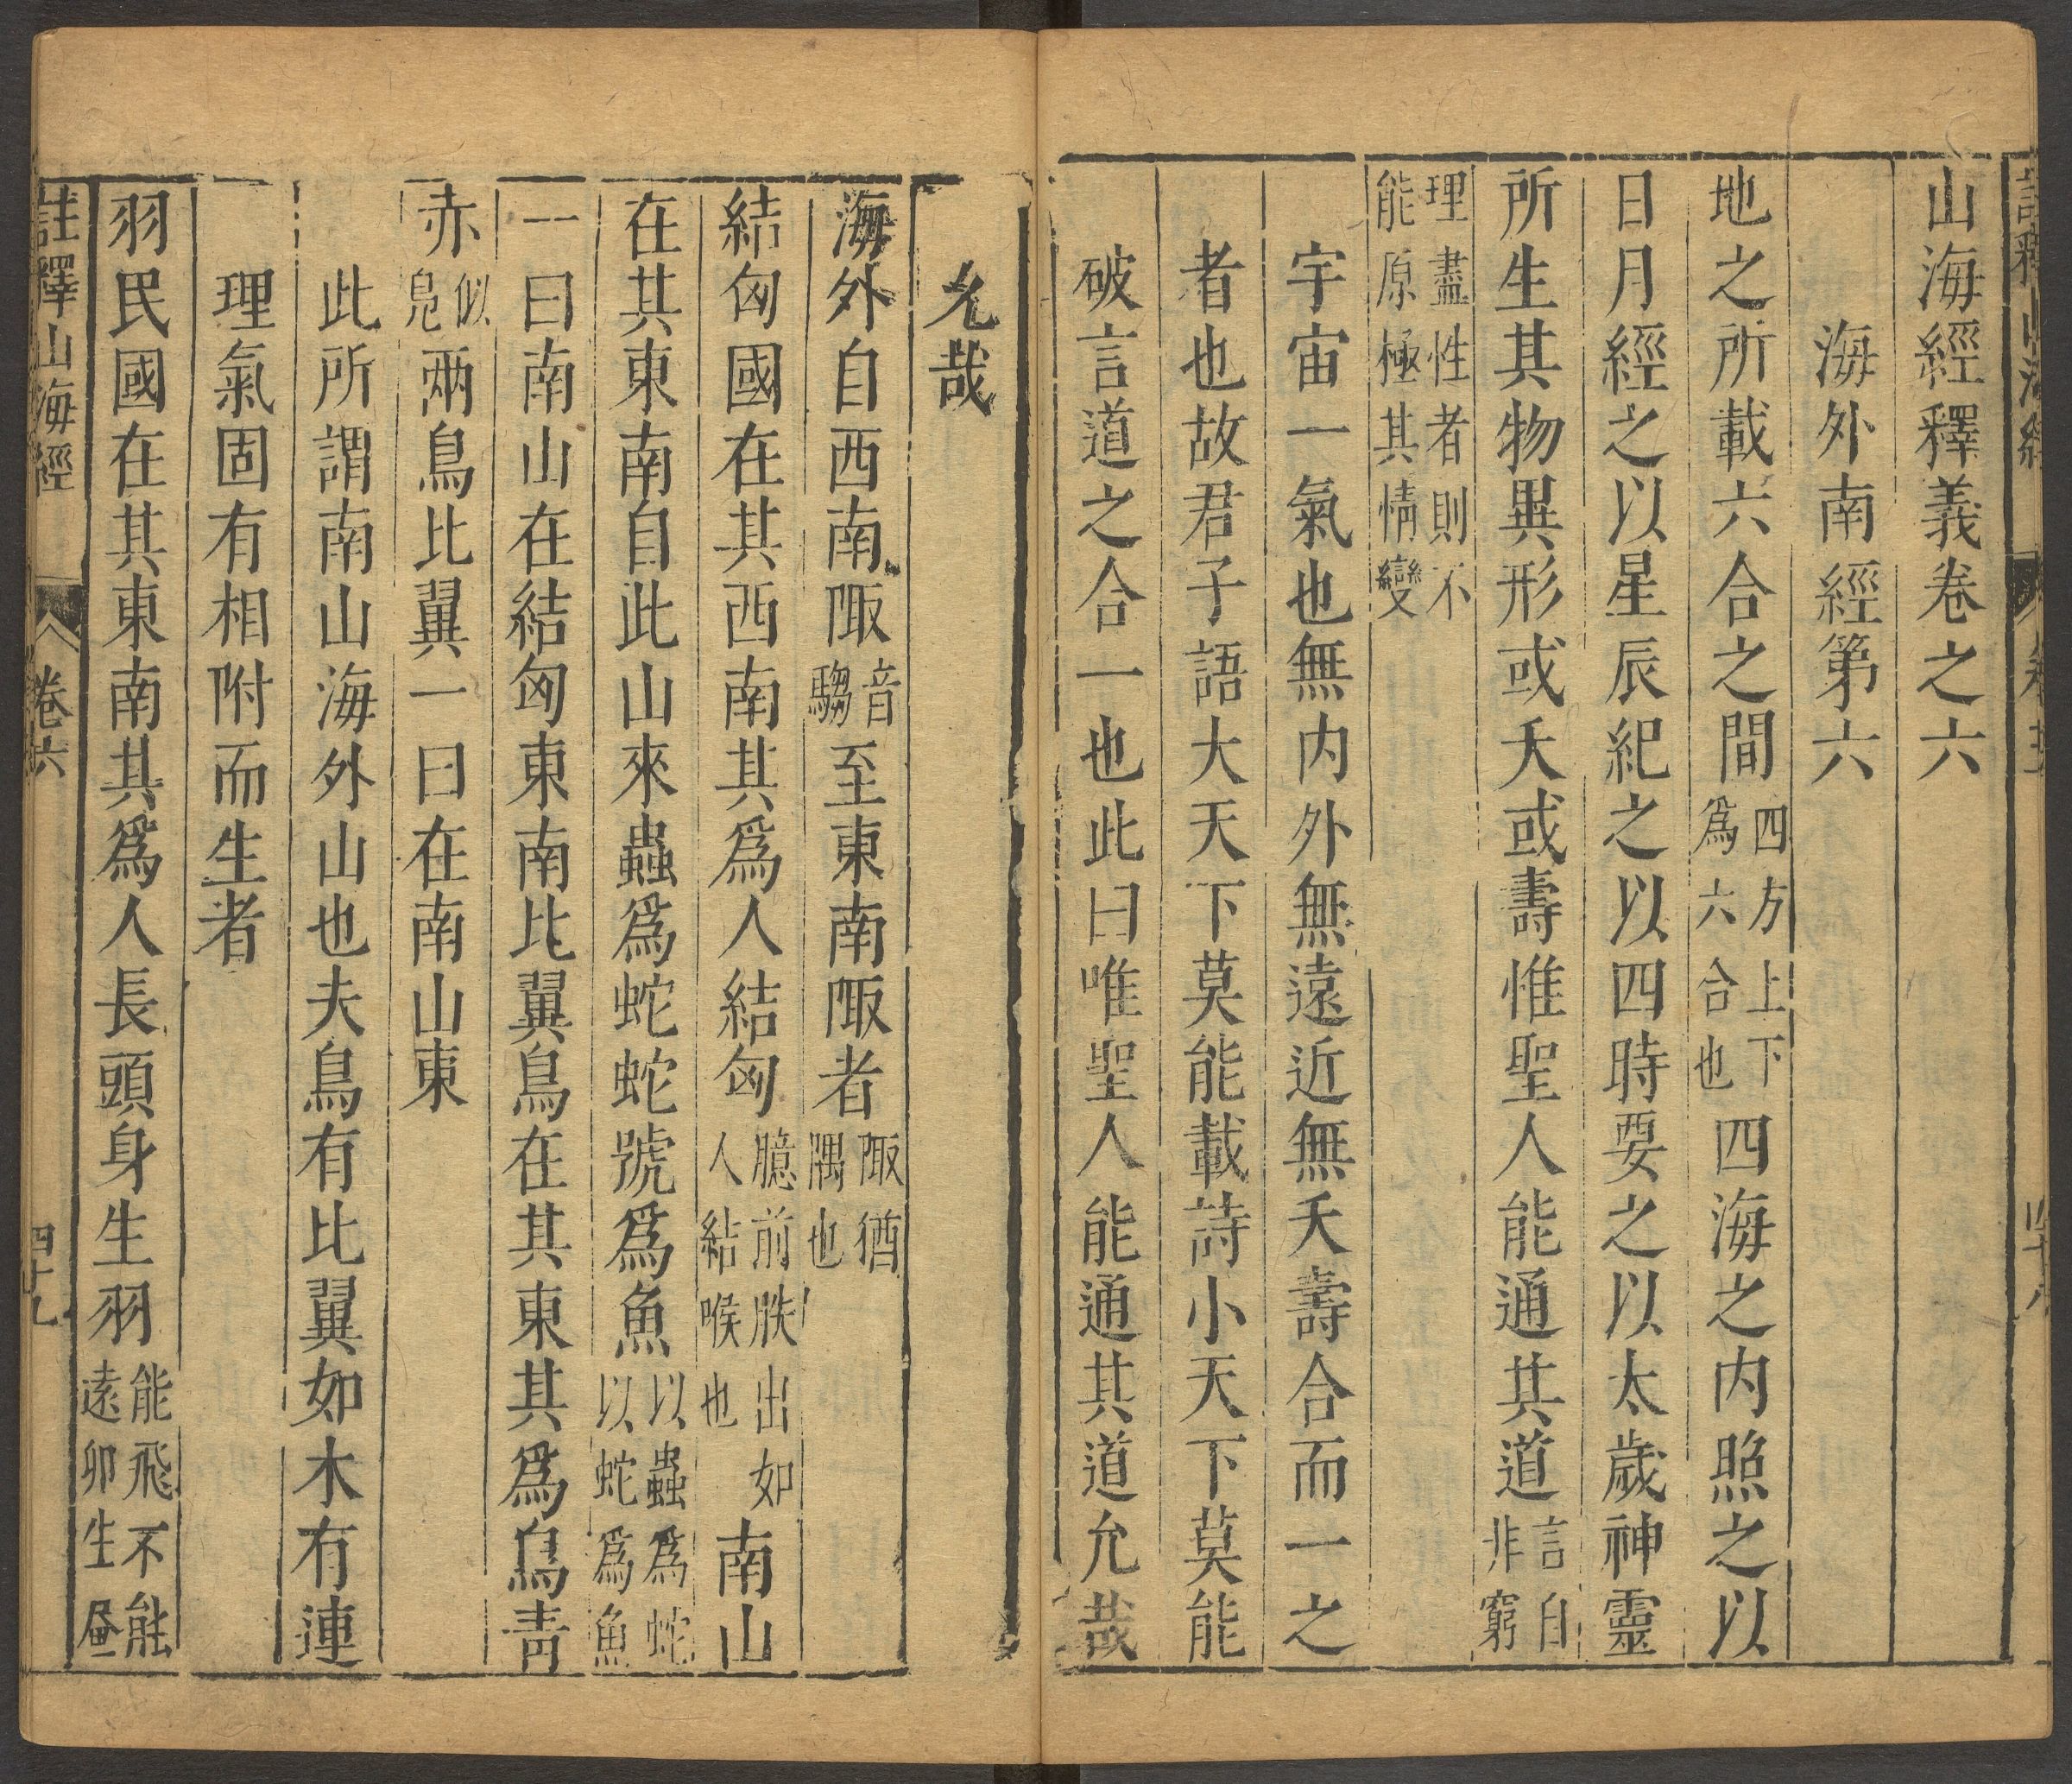 山海經釋義卷之六
海外南經第六
地之所載六合之間四方上下爲六合也四海之内照之以
日月經之以星辰紀之以四時要之以太歲神靈
所生其物異形或夭或壽惟聖人能通其道言自非窮
理盡性者則不能原極其情變
宇宙一氣也無内外無遠近無夭壽合而一之
者也故君子語大天下莫能載詩小天下莫能
破言道之合一也此曰唯聖人能通其道允哉
允哉
海外自西南陬音騶至東南陬者陬猶隅也
結匈國在其西南其爲人結匈臆前胅出如人結喉也南山
在其東南自此山來蟲爲蛇蛇號爲魚以蟲爲蛇以蛇爲魚
一曰南山在結匈東南比翼鳥在其東其爲鳥靑
赤似鳧兩鳥比翼一曰在南山東
此所謂南山海外山也夫鳥有比翼如木有連
理氣固有相附而生者
羽民國在其東南其爲人長頭身生羽能飛不能遠卵生
註釋山海經 卷六 四十九